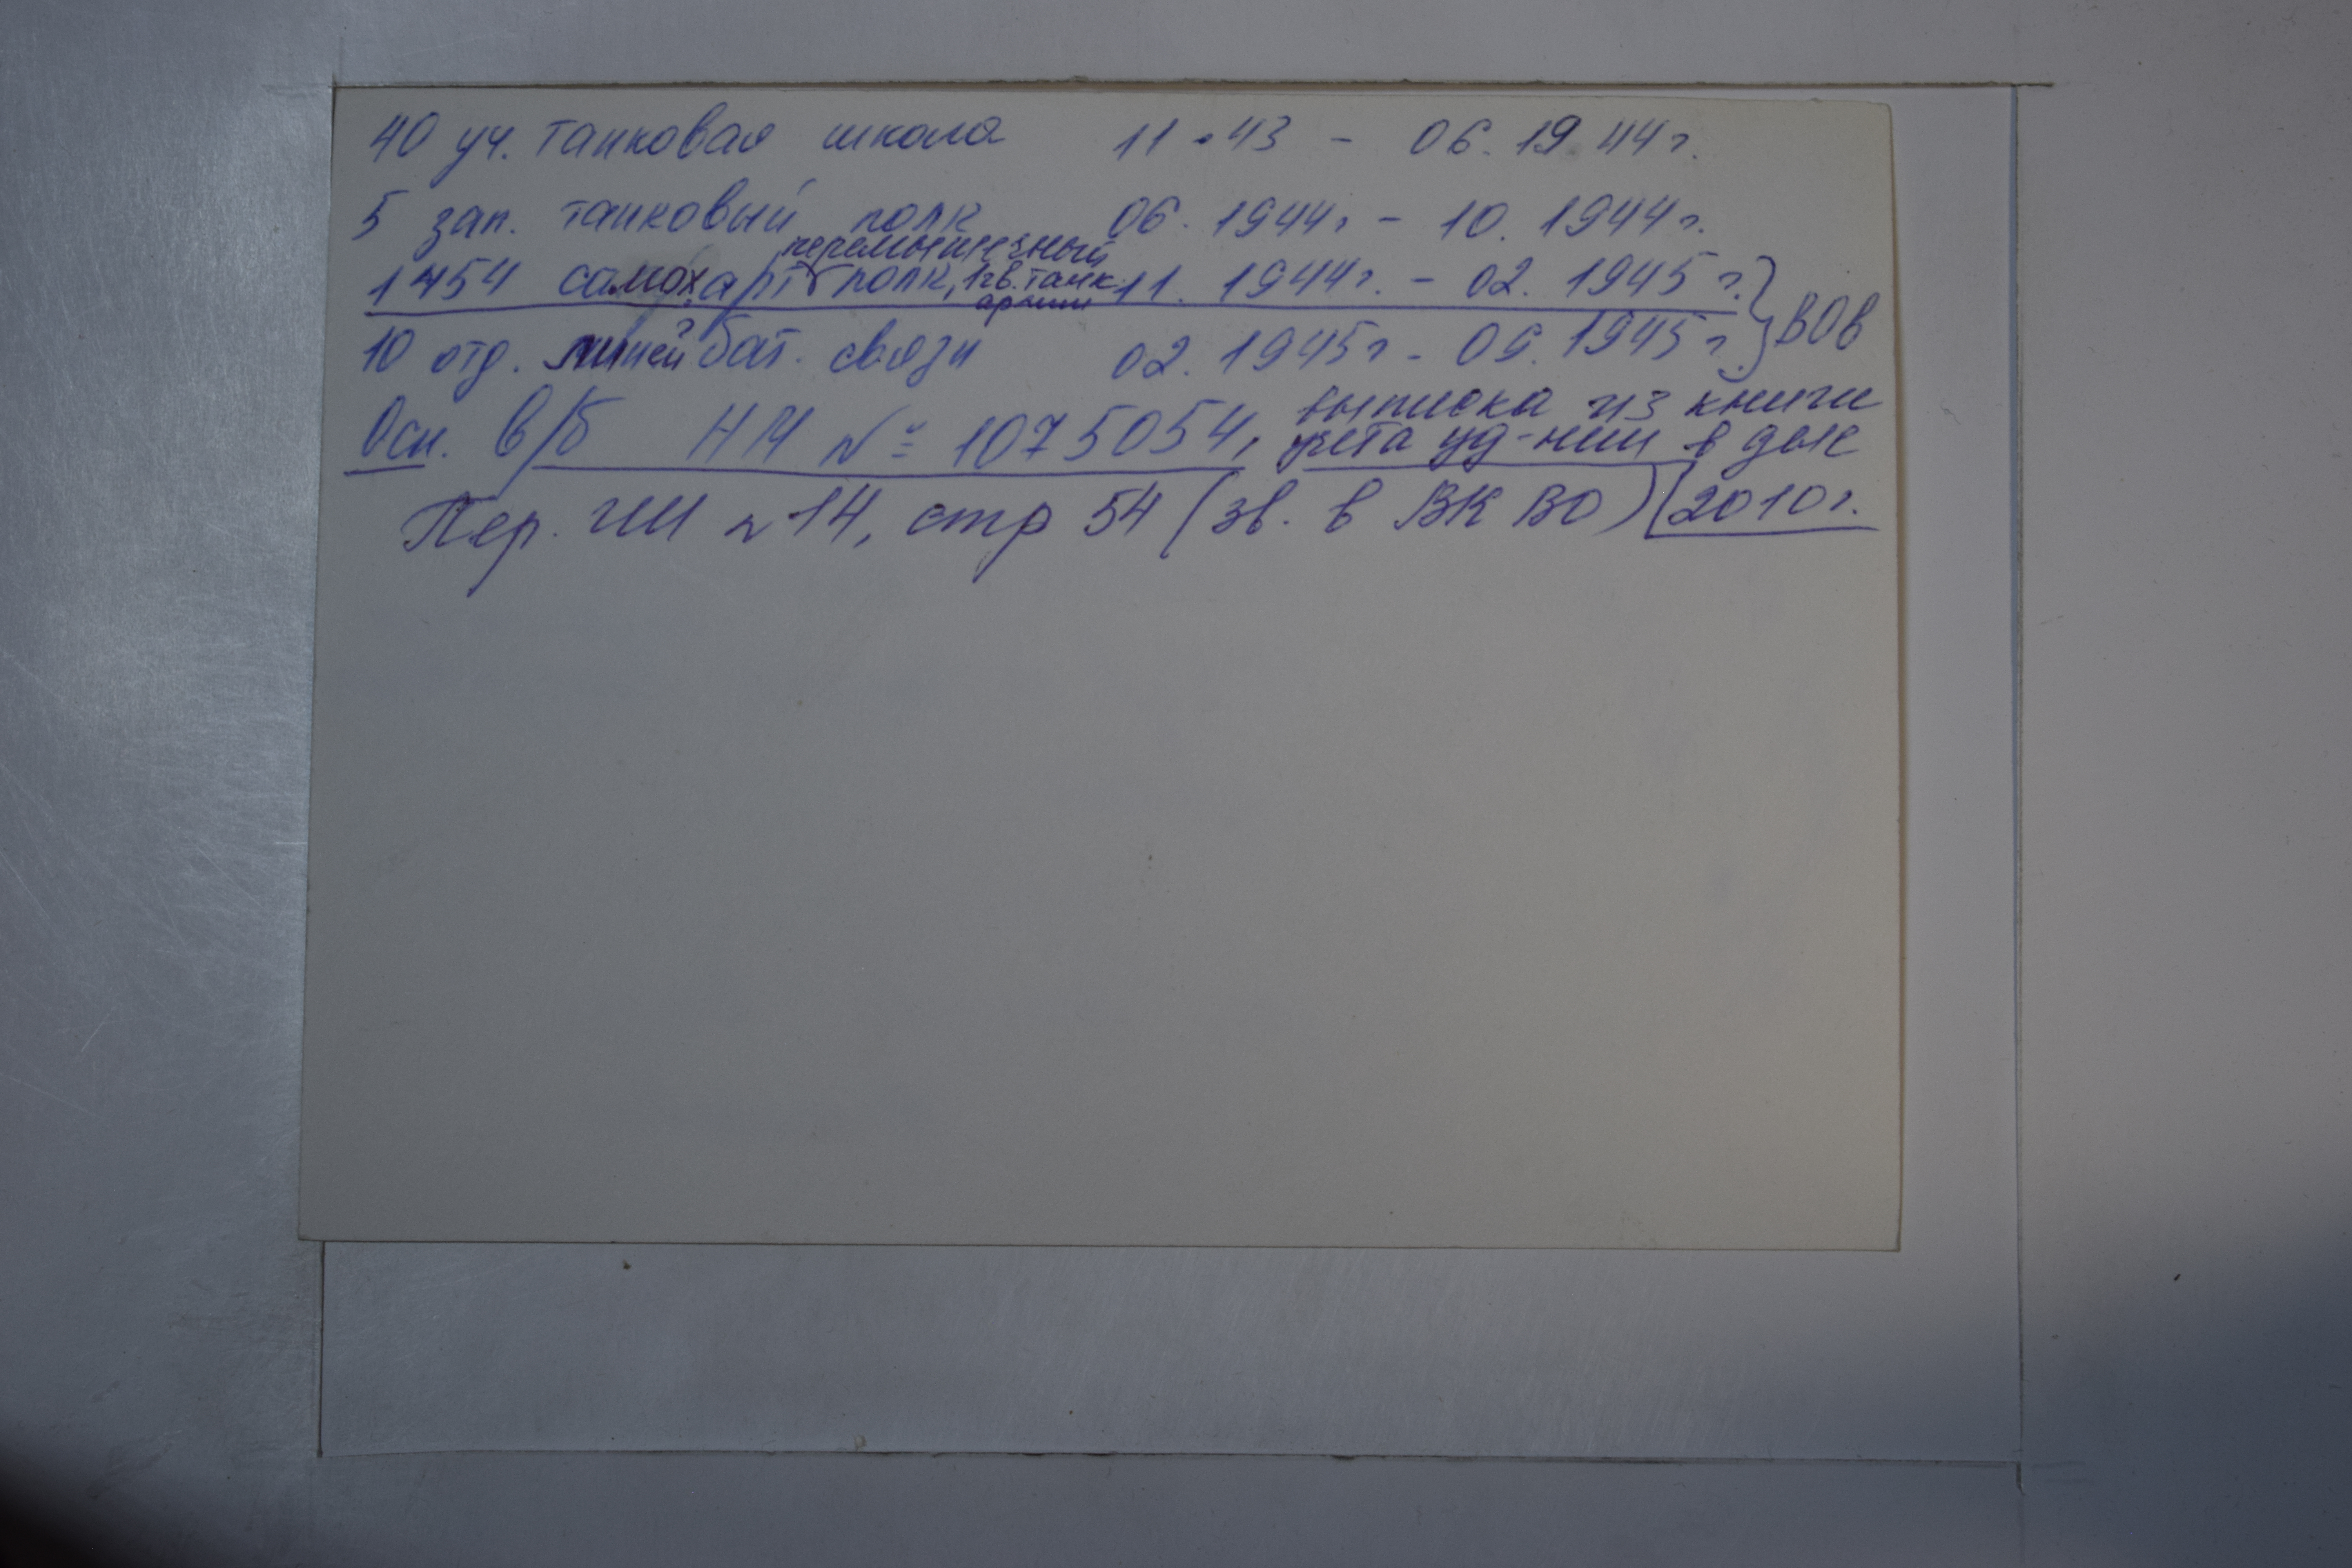 40 уч. танковая школа 11.43 - 06.1944г.
5 зап. танковый полк 06.1944г - 10.1944г.
перемышленский
1454 самох. арт полк, 1 гв. танк. 11.1944г. - 02.1945г.
армии
10 отд. линей бат. связи 02.1945г - 09.1945г. } ВОВ
Осн. в/б НИ № 1075054, выписка из книги
учета уд-ний в деле
Пер. № 14, стр 54 (зв. в ВК ВО) 2010г.